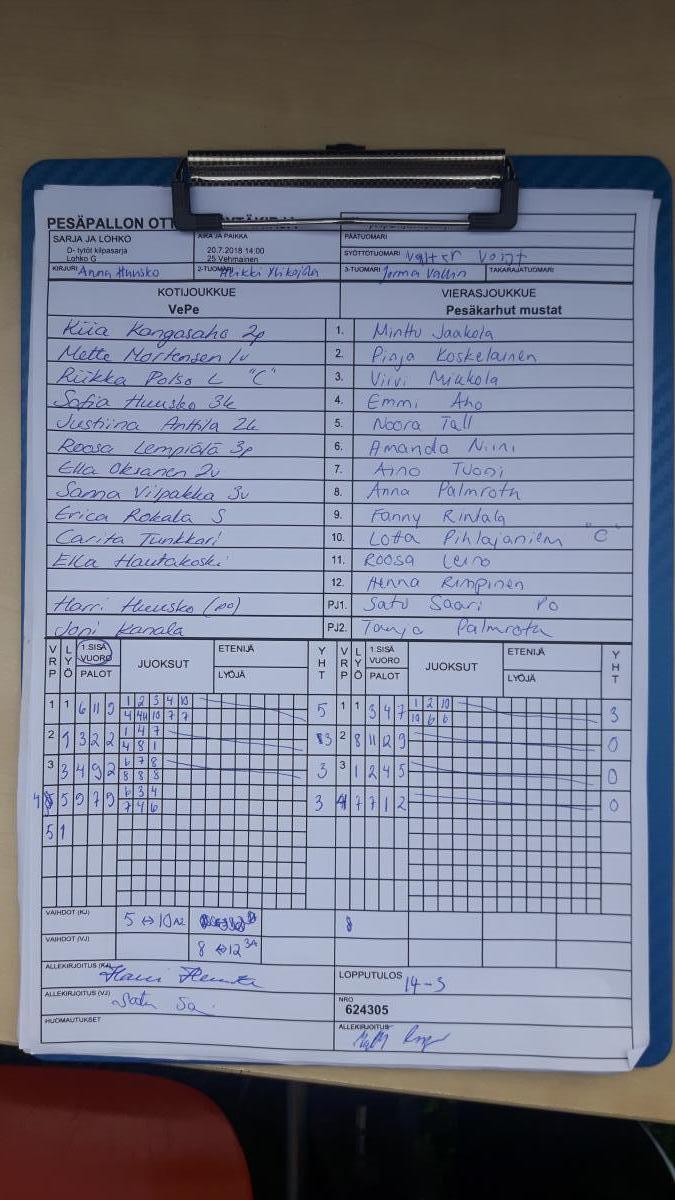 PESÄPALLON
SARJA JA LOHKO
D- tytöt kilpasarja
Lohko G
AIKA JA PAIKKA
20.7.2018 14:00
25 Vehmainen
PÄÄTUOMARI
SYÖTTÖTUOMARI Valter Voigt
KIRJURI Anna Huusko
2-TUOMARI Heikki Ylikojola
3-TUOMARI Jorma Vallin
TAKARAJATUOMARI
KOTIJOUKKUE
VePe
VIERASJOUKKUE
Pesäkarhut mustat
Kiia Kangasaho 2p 1. Minttu Jaakola
Mette Mortensen 1v 2. Pinja Koskelainen
Riikka Polso L "C" 3. Viivi Mikkola
Sofia Huusko 3k 4. Emmi Aho
Justiina Anttila 2k 5. Noora Tall
Roosa Lempiälä 3p 6. Amanda Niini
Ella Oksanen 2v 7. Aino Tuomi
Sanna Vilpakka 3v 8. Anna Palmroth
Erica Rokala S 9. Fanny Rintala
Carita Tunkkari 10. Lotta Pihlajaniemi "C"
Ella Hautakoski 11. Roosa Leino
12. Henna Rimpinen
Harri Huusko (po) PJ1. Satu Saari PO
Joni Kanala PJ2. Tanja Palmroth
VRP LYÖ 1.SISÄVUORO PALOT JUOKSUT ETENIJÄ LYÖJÄ YHT VRP LYÖ 1.SISÄVUORO PALOT JUOKSUT ETENIJÄ LYÖJÄ YHT
1 1 6 11 9 1 2 3 4 10 5 1 1 3 4 7 1 2 10 3
4 4 10 7 7 10 6 6
2 1 3 2 2 1 4 7 3 2 8 11 12 9 0
4 8 1
3 3 4 9 2 6 7 8 3 3 1 2 4 5 0
8 8 8
4 5 9 7 9 6 3 4 3 4 7 7 1 2 0
7 4 6
5 1
VAIHDOT (KJ) 5 ↔ 10 A2 8
VAIHDOT (VJ) 8 ↔ 12 3A
ALLEKIRJOITUS (KJ)
LOPPUTULOS 14-3
ALLEKIRJOITUS (VJ)
NRO
624305
HUOMAUTUKSET
ALLEKIRJOITUS